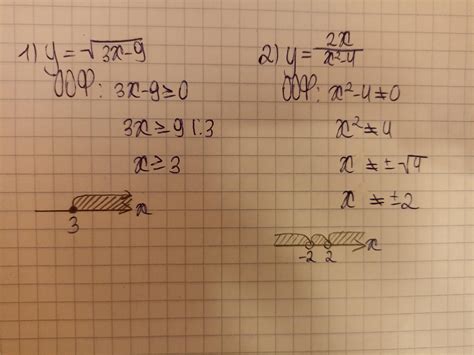 1) y = √3x-9
ООФ: 3x-9≥0
3x≥9 |:3
x≥3
3 x
2) y = 2x/x²-4
ООФ: x²-4≠0
x²≠4
x ≠ ±√4
x ≠ ±2
-2 2 x